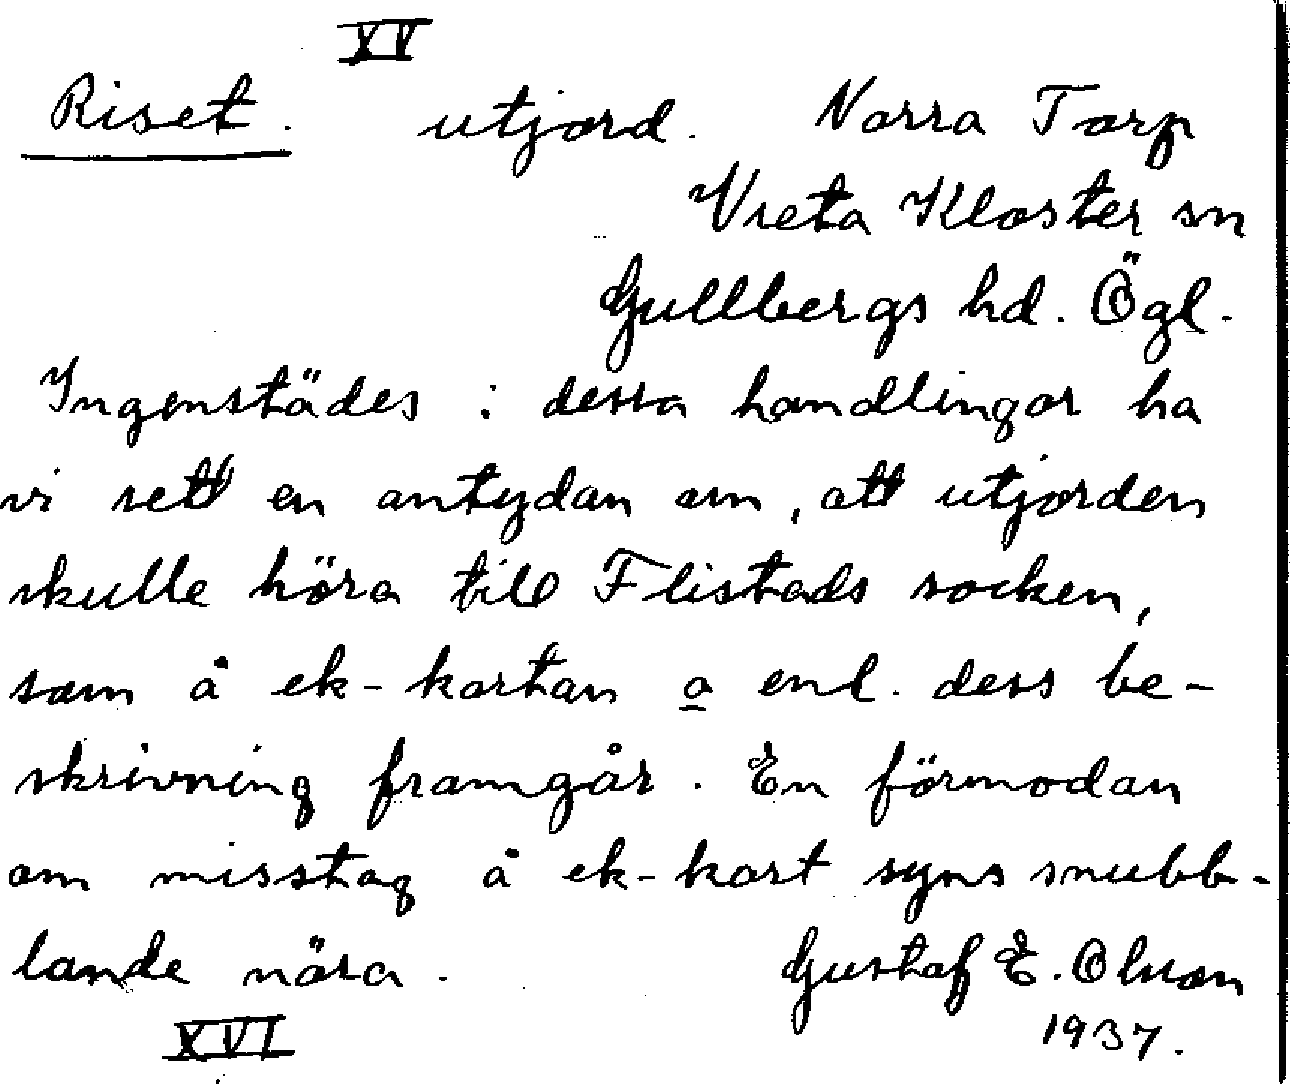 XV
Riset. utjord. Norra Torp
Vreta Kloster sn
Gullbergs hd. Ögl.
Ingenstädes i dessa handlingar ha
vi sett en antydan om, att utjorden
skulle höra till Flistads socken,
som å ek-kartan o enl. dess be-
skrivning framgår. En förmodan
om misstag å ek-kart syns snubb-
lande nära.
Gustaf E. Olsson
1937.
XVI